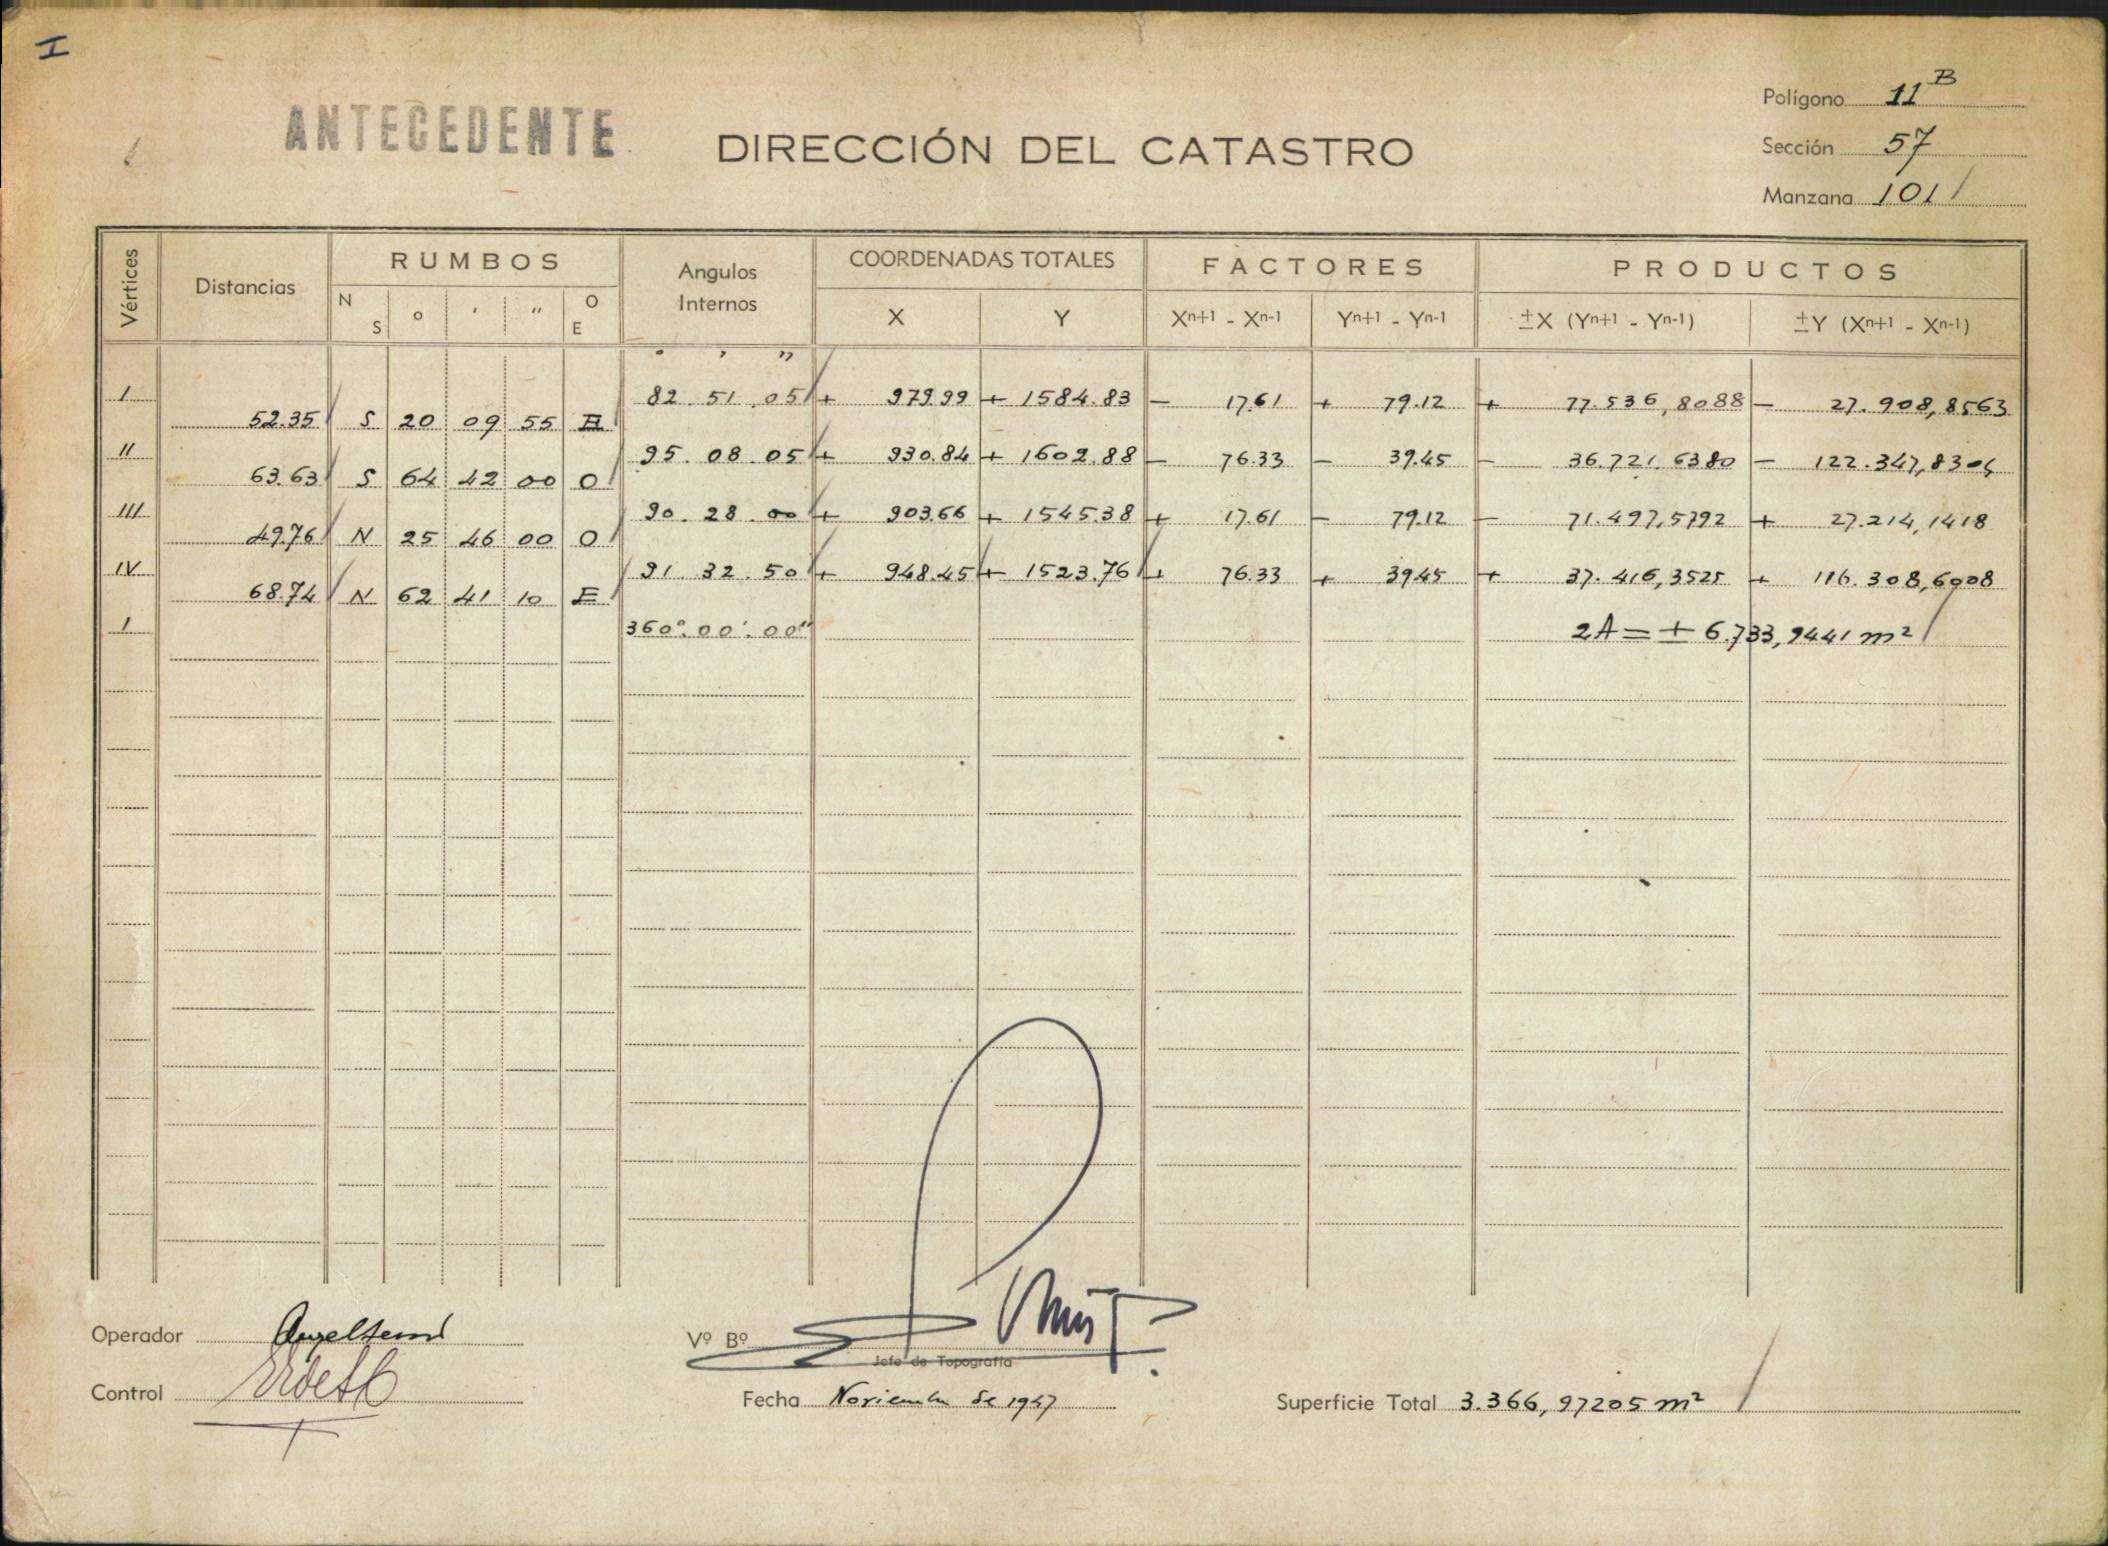 I
Polígono 11 B
ANTECEDENTE
DIRECCIÓN DEL CATASTRO
Sección 57
Manzana 101
Vértices Distancias RUMBOS Angulos Internos COORDENADAS TOTALES FACTORES PRODUCTOS
N S o ' " O E X Y Xn+1 - Xn-1 Yn+1 - Yn-1 ±X (Yn+1 - Yn-1) ±Y (Xn+1 - Xn-1)
° ' "
I 82. 51. 05 + 979.99 + 1584.83 - 17.61 + 79.12 + 77.536,8088 - 27.908,8563
52.35 S 20 09 55 E
II 95. 08. 05 + 930.84 + 1602.88 - 76.33 - 39.45 - 36.721,6380 - 122.347,8304
63.63 S 64 42 00 O
III 90. 28. 00 + 903.66 + 1545.38 + 17.61 - 79.12 - 71.497,5792 + 27.214,1418
49.76 N 25 46 00 O
IV 91. 32. 50 + 948.45 + 1523.76 + 76.33 + 39.45 + 37.416,3525 + 116.308,6008
68.74 N 62 41 10 E
I 360°. 00'. 00" 2A = ± 6.733,9441 m²
Operador
Vº Bº
Jefe de Topografía
Control
Fecha Noviembre de 1947
Superficie Total 3.366,97205 m²